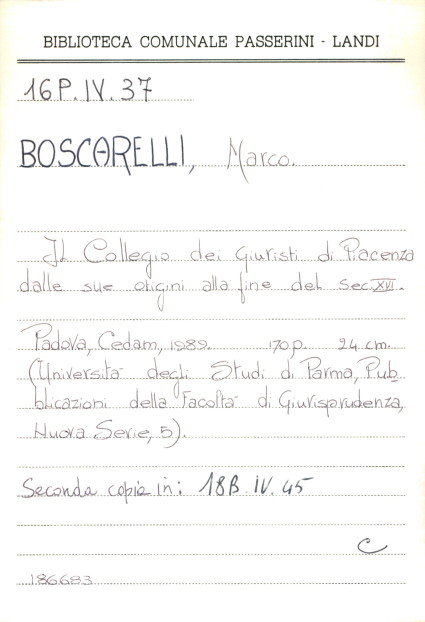 BIBLIOTECA COMUNALE PASSERINI - LANDI
16P.IV.37
BOSCARELLI, Marco.
Il Collegio dei Giuristi di Piacenza
dalle sue origini alla fine del sec. XVI.
Padova, Cedam, 1989. 170 p. 24 cm.
(Università degli Studi di Parma, Pub
blicazioni della Facoltà di Giurisprudenza,
Nuova Serie, 5).
Seconda copia in: 18B.IV.45
C
186683